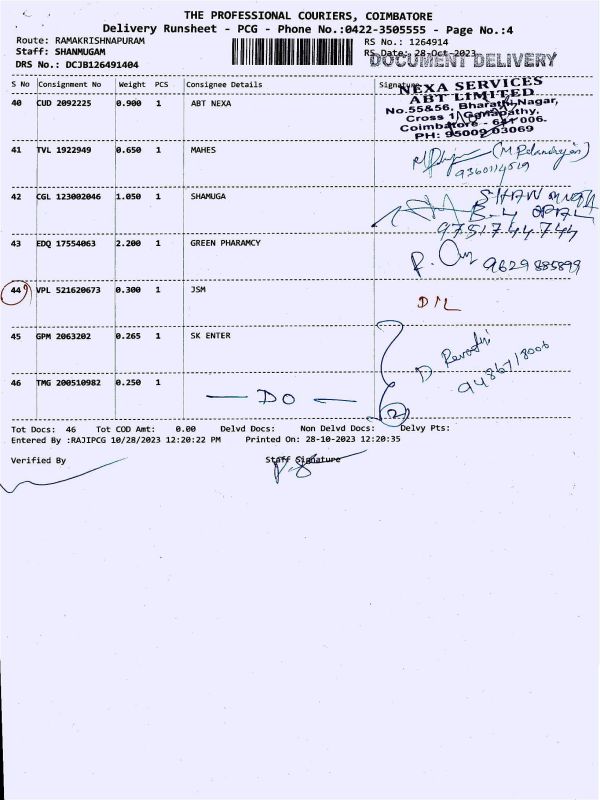 THE PROFESSIONAL COURIERS, COIMBATORE
Delivery Runsheet - PCG - Phone No.:0422-3505555 - Page No.:4
Route: RAMAKRISHNAPURAM RS No.: 1264914
Staff: SHANMUGAM RS Date: 28-Oct-2023
DOCUMENT DELIVERY
DRS No.: DCJB126491404
S No Consignment No Weight PCS Consignee Details Signature
NEXA SERVICES
ABT LIMITED
No.55&56, Bharathi Nagar,
Cross 1, Ganapathy,
Coimbatore - 641 006.
PH: 95009 03069
40 CUD 2092225 0.900 1 ABT NEXA
41 TVL 1922949 0.650 1 MAHES
9360114519
42 CGL 123002046 1.050 1 SHAMUGA
9751744744
43 EDQ 17554063 2.200 1 GREEN PHARAMCY
9629885899
44 VPL 521620673 0.300 1 JSM D/L
45 GPM 2063202 0.265 1 SK ENTER
D. Revathi
9486718006
46 TMG 200510982 0.250 1
— DO —
2
Tot Docs: 46 Tot COD Amt: 0.00 Delvd Docs: Non Delvd Docs: Delvy Pts:
Entered By :RAJIPCG 10/28/2023 12:20:22 PM Printed On: 28-10-2023 12:20:35
Verified By Staff Signature